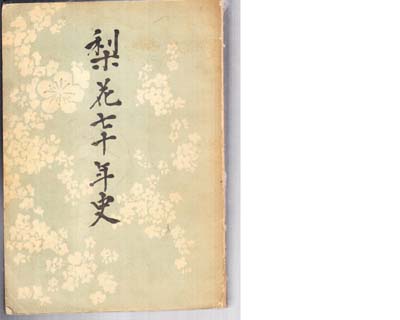 梨花七十年史